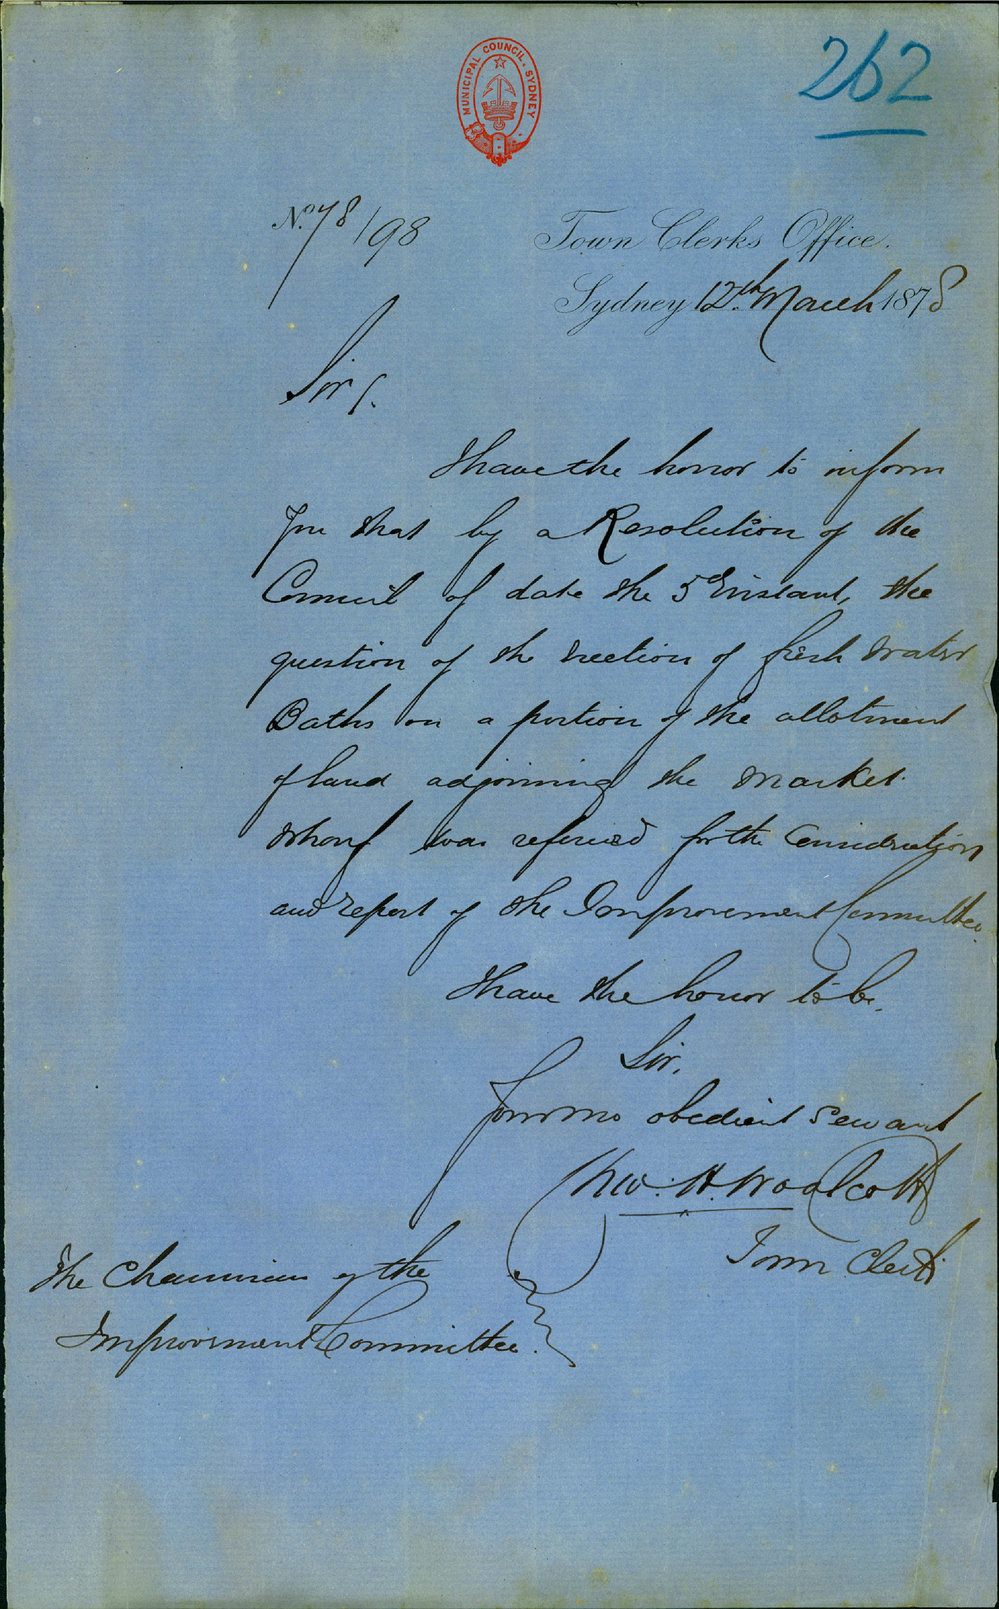 262
MUNICIPAL COUNCIL. SYDNEY
No. 78/98
Town Clerks Office.
Sydney 12th March 1878
Sir,
I have the honor to inform
you that by a Resolution of the
Council of date the 5th instant, the
question of the erection of fresh water
Baths on a portion of the allotment
of land adjoining the Market
Wharf was referred for the Consideration
and report of the Improvement Committee.
I have the honor to be,
Sir,
Your mo obedient Servant
Chas. H. Woolcott
Town Clerk
The Chairman of the
Improvement Committee.